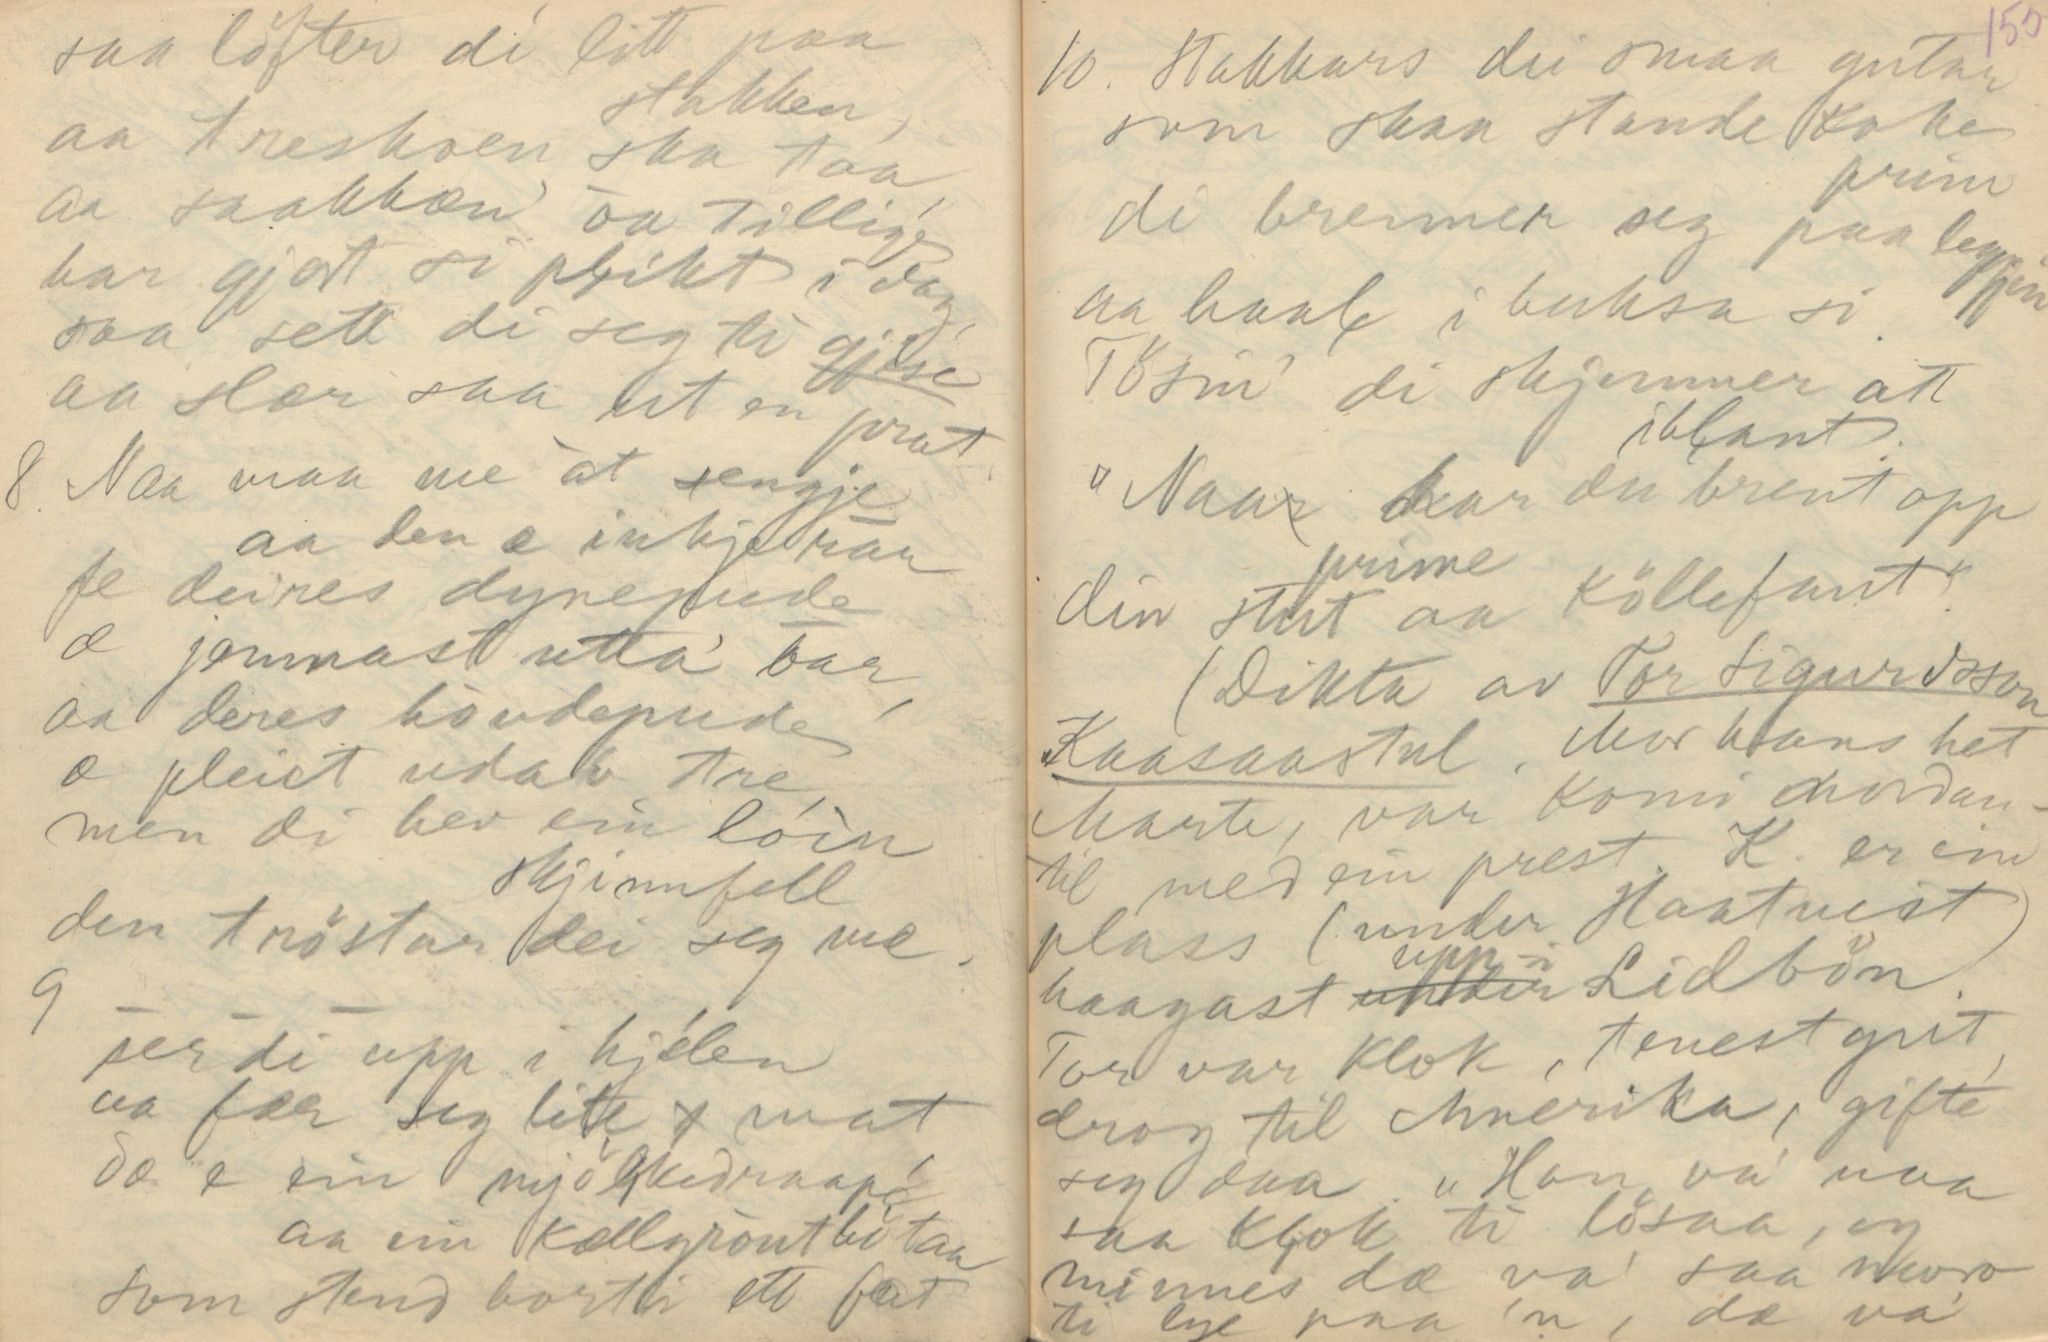 saa löfter di litt paa
stakken,
aa treskoen ska taa,
aa saakkæn aa tillige
har gjort si plikt i dag,
saa sett di seg ti gjise
aa slær saa ut en prat.
8. Naa maa me åt sengje
aa den e inkje rår
fe deires dynepude
æ jammast uttå bar,
aa deres hovdepude
æ pleiet udav tre,
men di hev ein loin
skjinnfell
den tröstar dei seg me.
9
ser di upp i hjelen
aa fær seg lite mat
dæ e ein mjölkedraape
aa ein kallgrout bit aa
som stend borti ett fat
155
10. Stakkars dei smaa gutar
som skaa stande koke
prim
di brenner seg paa leggjen
aa haal i buksa si.
Tösin' di skjemmer att
iblant.
"Naa har du brent opp
prime
din stut aa köllefant".
(Dikta av Tor Sigurdsson
Kaasaastul. Mor hans het
Marte, var komi nordan-
til med ein prest. K. er ein
plass (under Haatveit)
upp i
haagast under Lidbön.
Tor var klok, tenest gut,
drog til Amerika, gifte
seg daa. "Han va' naa
saa klok ti lösaa, eg
minnes dæ va' saa moro
ti lye paa 'n, dæ va'